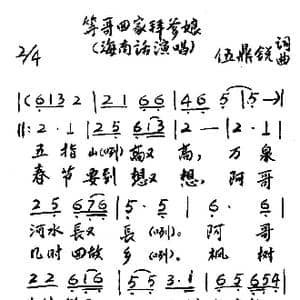 等哥回家拜爹娘
(海南话演唱)
2/4
伍鼎锐 词曲
|(6 1 3 2 | 2 1 6 6 | 4 6 5 | 5 —)|
||: 2 · 1 | 2 5 6 1 3 | 2 — | 2 · 1 |
五指山(咧)高又高，万泉
春节要到想又想，阿哥
2 5 6 7 6 | 5 · 5 | 6 · 6 |
河水長又長(咧)。阿哥
几时回故乡(咧)。枫树
2 2 6 1 6 | 5 5 3 · 1 | 6 5 6 5 4 |